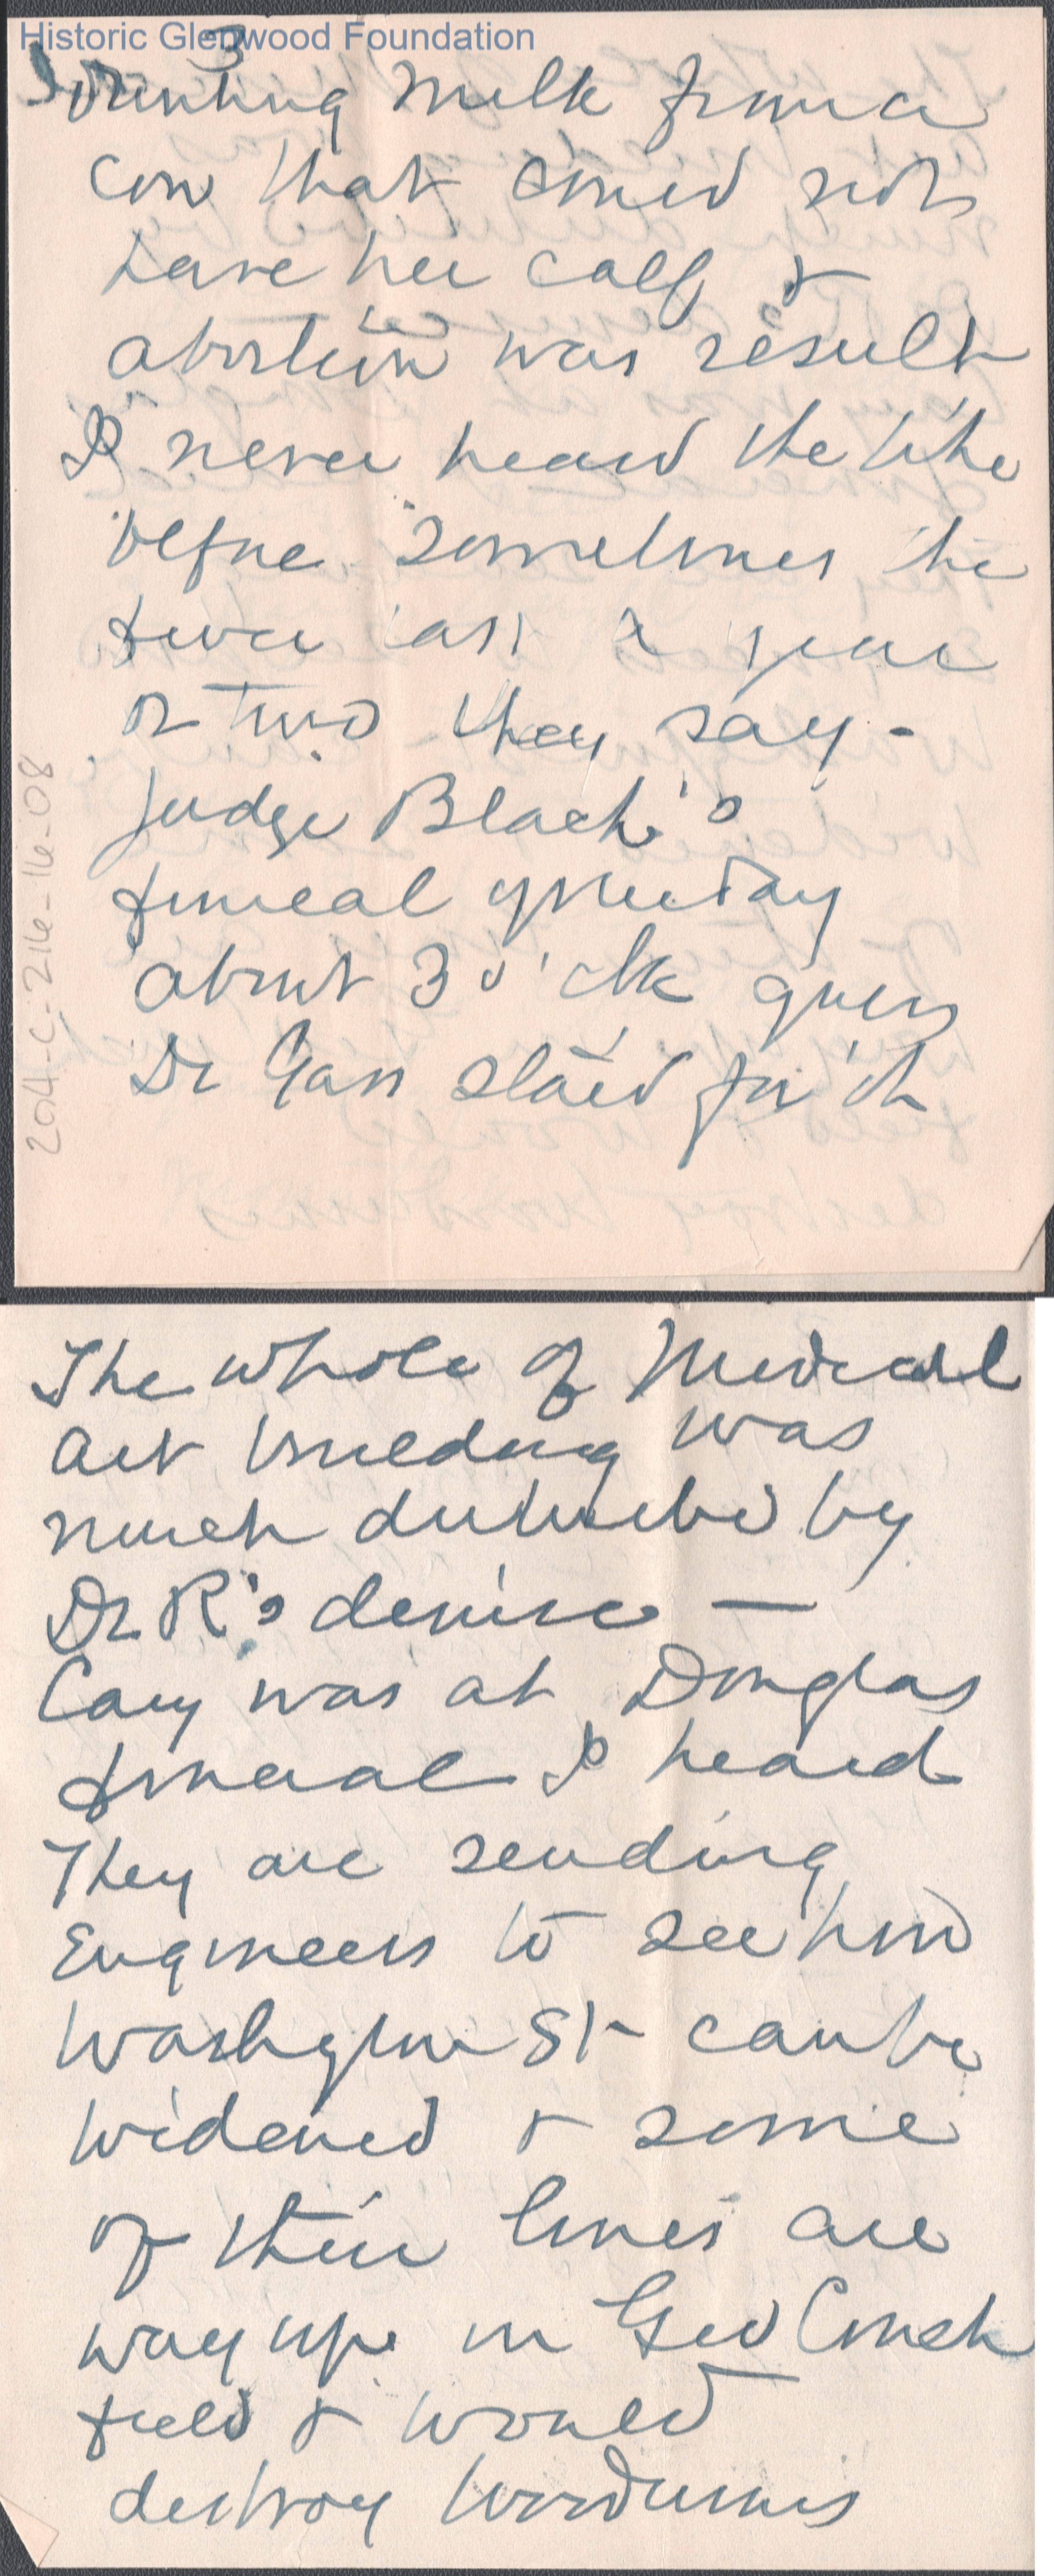 Historic Glenwood Foundation
3
Drinking milk from a
cow that could not
have her calf &
abortion was result
I never heard the like
before sometimes the
fever lasts a year
or two they say -
Judge Black's
funeral yesterday
about 3 o'clk guess
Dr Gass staid for it
204-C-216-16-08
The whole of Medical
Art building was
much disturbed by
Dr R's demise —
Cary was at Douglas
funeral I heard
They are sending
Engineers to see how
Washington St can be
widened & some
of their lines are
way up in Geo Couch
field & would
destroy Woodums